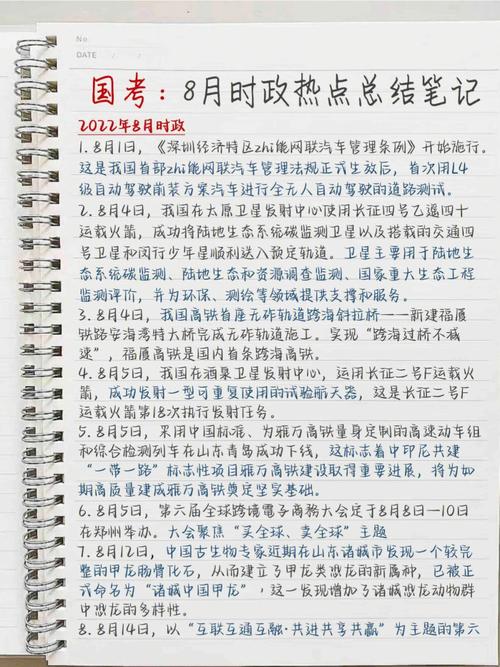 No.
DATE / /
国考：8月时政热点总结笔记
2022年8月时政
1. 8月1日，《深圳经济特区zhi能网联汽车管理条例》开始施行。
这是我国首部zhi能网联汽车管理法规正式生效后，首次用L4
级自动驾驶前装方案汽车进行全无人自动驾驶的道路测试。
2. 8月4日，我国在太原卫星发射中心使用长征四号乙遥四十
运载火箭，成功将陆地生态系统碳监测卫星以及搭载的交通四
号卫星和闵行少年星顺利送入预定轨道。卫星主要用于陆地生
态系统碳监测、陆地生态和资源调查监测、国家重大生态工程
监测评价，并为环保、测绘等领域提供支撑和服务。
3. 8月4日，我国高铁首座无砟轨道跨海斜拉桥——新建福厦
铁路安海湾特大桥完成无砟轨道施工。实现“跨海过桥不减
速”，福厦高铁是国内首条跨海高铁。
4. 8月5日，我国在酒泉卫星发射中心，运用长征二号F运载火
箭，成功发射一型可重复使用的试验航天器，这是长征二号F
运载火箭第18次执行发射任务。
5. 8月5日，采用中国标准、为雅万高铁量身定制的高速动车组
和综合检测列车在山东青岛成功下线，这标志着中印尼共建
“一带一路”标志性项目雅万高铁建设取得重要进展，将为如
期高质量建成雅万高铁奠定坚实基础。
6. 8月5日，第六届全球跨境電子商務大会定于8月8日—10日
在郑州举办。大会聚焦“买全球、卖全球”主题
7. 8月12日，中国古生物专家近期在山东诸城市发现一个较完
整的甲龙肠骨化石，从而建立了甲龙类恐龙的新属种，已被正
式命名为“诸城中国甲龙”，这一发现增加了诸城恐龙动物群
中恐龙的多样性。
8. 8月14日，以“互联互通互融·共进共享共赢”为主题的第六